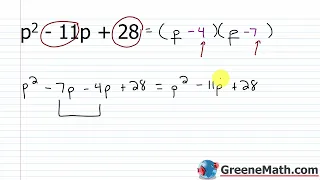 p² - 11p + 28 = (p - 4)(p - 7)
p² - 7p - 4p + 28 = p² - 11p + 28
GreeneMath.com